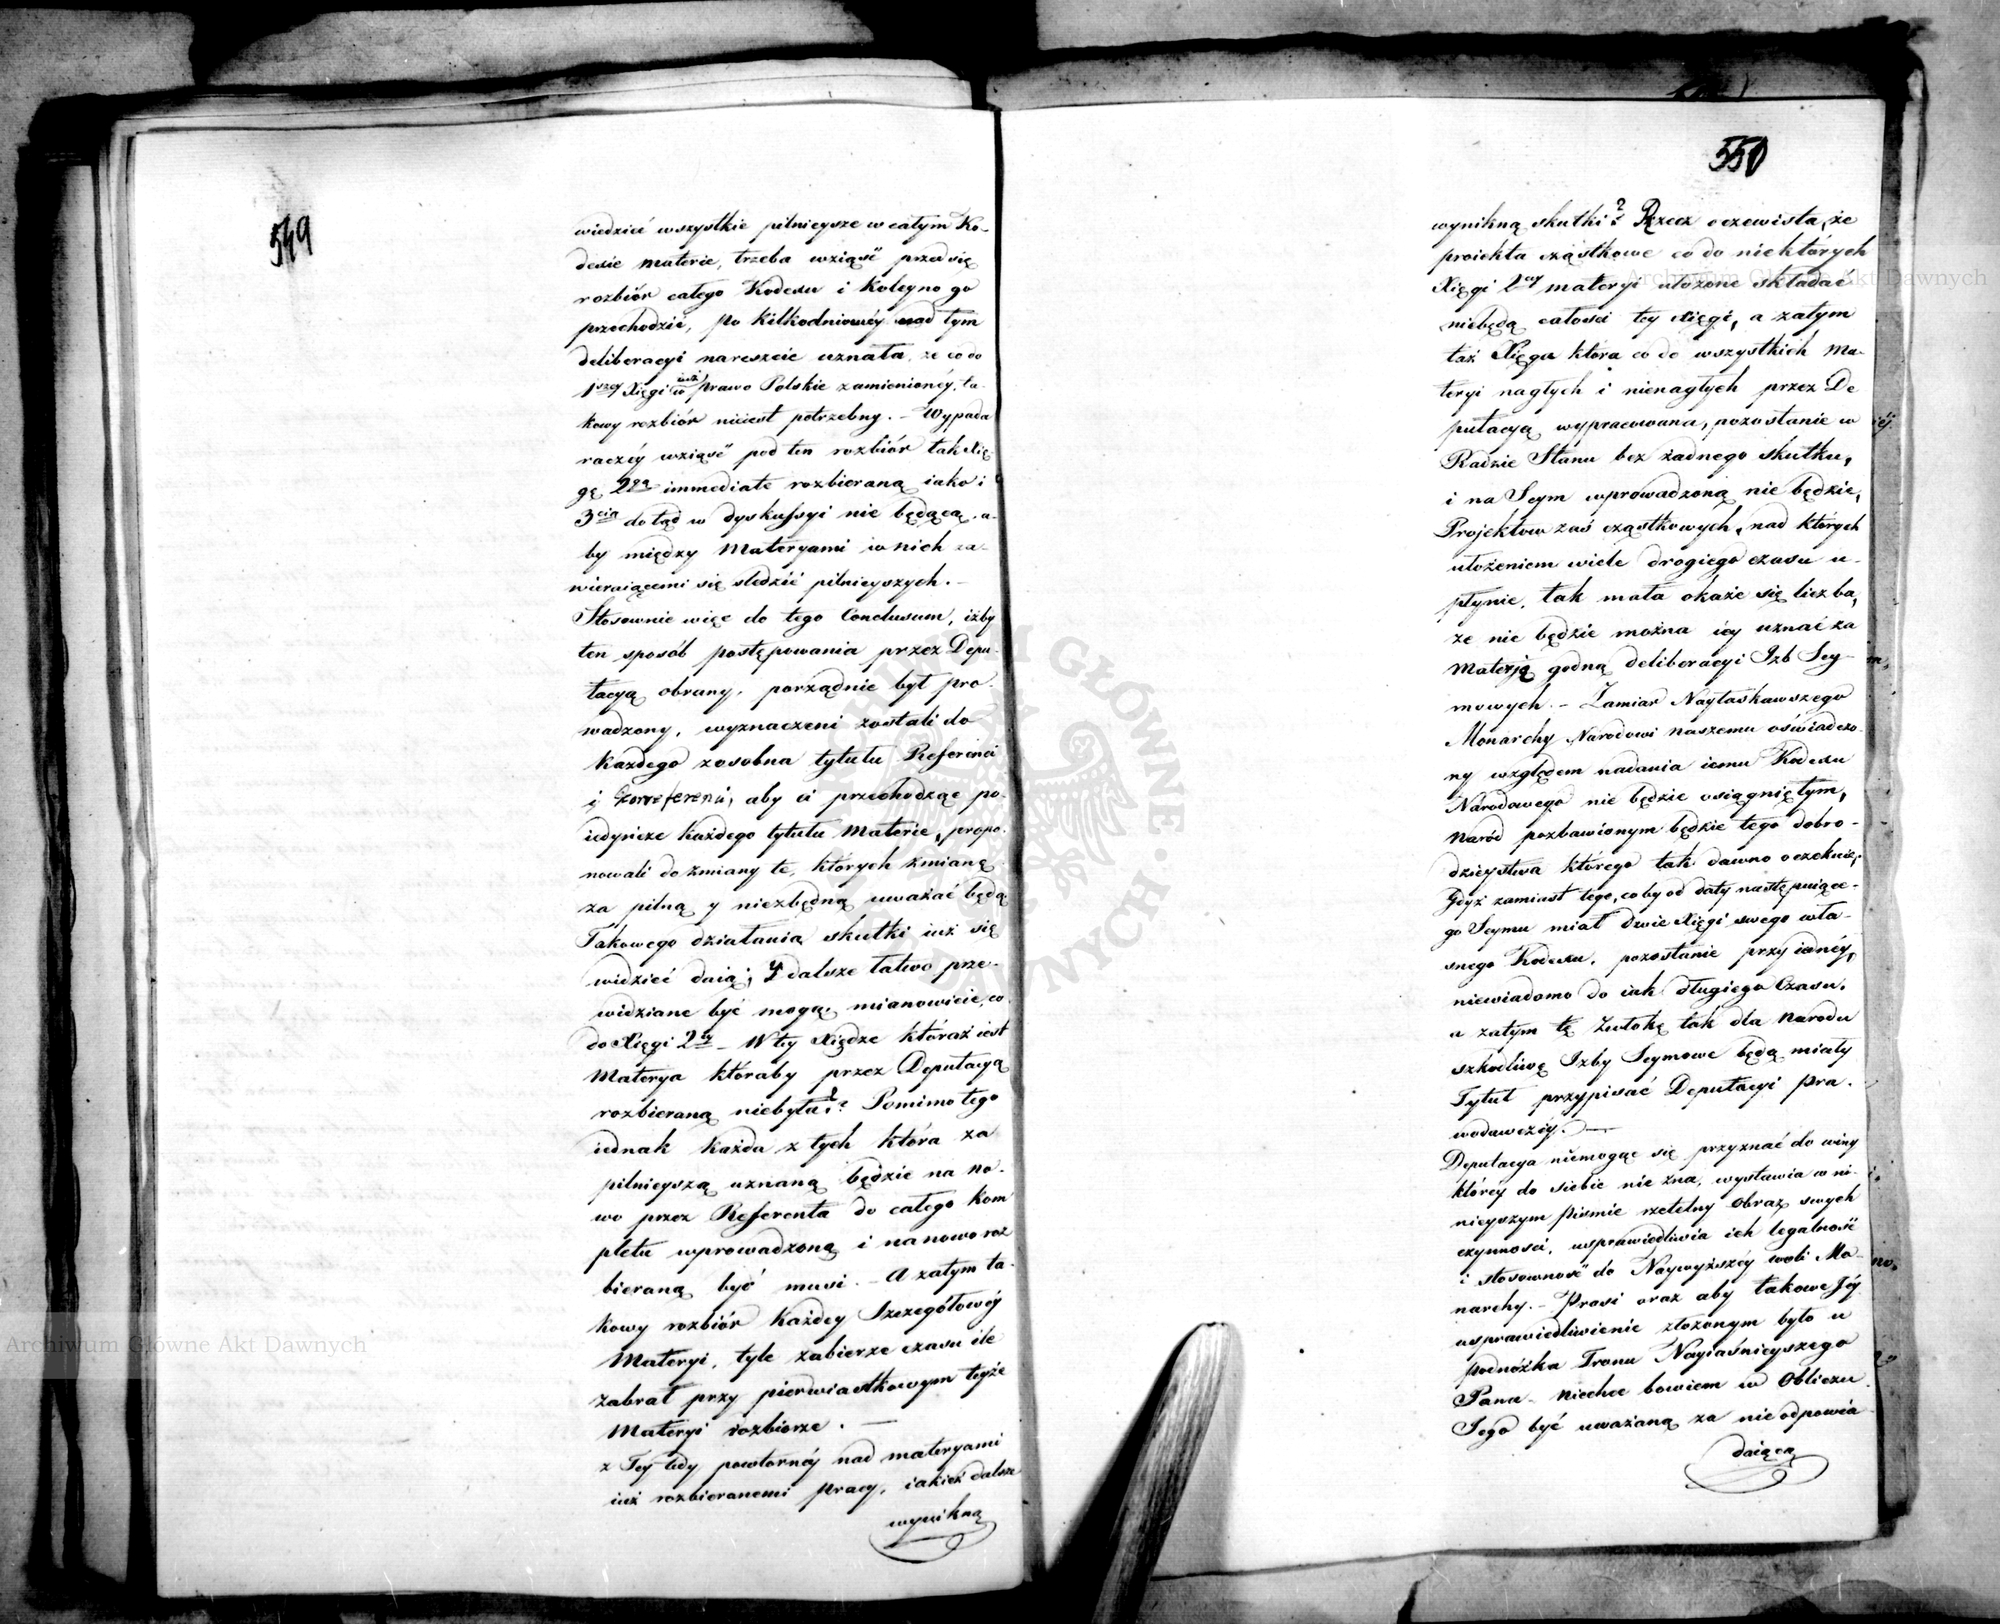 549
wiedzieć wszystkie pilnieysze w całym Ko-
dexie materie, trzeba wziąść przed się
rozbiór całego Kodexu i kolejno go
przechodzić, po kilkodniowéy nad tym
deliberacyi nareszcie uznała, że co do
1szey Xięgi już w prawo Polskie zamienionéy, ta-
kowy rozbiór nieiest potrzebny. – Wypada
raczéy wziąść pod ten rozbiór tak Xię-
gę 2gą immediate rozbieraną iako i
3cią dotąd w dyskussyi nie będącą, a-
by między Materyami w nich za-
wieraiącemi się śledzić pilnieyszych. –
Stosownie więc do tego Conclusum, iżby
ten sposób postępowania przez Depu-
tacyą obrany, porządnie był pro-
wadzony, wyznaczeni zostali do
każdego zosobna tytułu Referenci
i Correferenci, aby ci przechodząc po-
iedyńcze każdego tytułu Materie, propo-
nowali do zmiany te, których zmianę
za pilną y niezbędną uważać będą
Takowego działania skutki iuż się
widzieć daią; y dalsze łatwo prze-
widziane być mogą, mianowicie co
do Xięgi 2éy – W téy Xiędze któraż iest
Materya któraby przez Deputacyą
rozbieraną niebyła? Pomimo tego
iednak każda z tych która za
pilnieyszą uznaną będzie na no-
wo przez Referenta do całego kom
pletu wprowadzoną i nanowo roz
bieraną być musi. – A zatym ta-
kowy rozbiór każdey Szczegółowéy
Materyi, tyle zabierze czasu ile
zabrał przy pierwiastkowym teyże
Materyi rozbiorze. —
z Tey tedy powtornéy nad materyami
iuż rozbieranemi pracy, iakież dalsze
wynikną
550
wynikną skutki? Rzecz oczewista, że
proiekta cząstkowe co do niektórych
Xięgi 2éy materyi ułożone składać
niebędą całości tey Xięgi, a zatym
taż Xięga która co do wszystkich Ma-
teryi nagłych i nienagłych przez De
putacyą wypracowana, pozostanie w
Radzie Stanu bez żadnego skutku,
i na Seym wprowadzoną nie będzie,
Projektow zaś cząstkowych, nad których
ułożeniem wiele drogiego czasu u-
płynie, tak mała okaże się liczba,
że nie będzie można iéy uznać za
Materją godną deliberacyi Izb Sey-
mowych. – Zamiar Nayłaskawszego
Monarchy Narodowi naszemu oświadczo-
ny względem nadania iemu Kodexu
Narodowego nie będzie osiągniętym,
Naród pozbawionym będzie tego dobro-
dzieystwa którego tak dawno oczekuie,
Gdyż zamiast tego, coby od daty następuiące-
go Seymu miał dwie Xięgi swego wła-
snego Kodexu, pozostanie przy iednéy,
niewiadomo do iak długiego Czasu,
a zatym tę Zwłokę tak dla Narodu
szkodliwę Izby Seymowe będą miały
Tytuł przypisać Deputacyi Pra-
wodawczéy. —
Deputacya niemogąc się przyznać do winy
któréy do siebie nie zna, wystawia w ni-
nieyszym Piśmie rzetelny Obraz swych
czynności, usprawiedliwia ich legalność
i stosowność do Naywyższéy woli Mo-
narchy. – Prosi oraz aby takowe Jéy
usprawiedliwienie złożonym było u
podnóżka Tronu Nayiaśnieyszego
Pana – niechce bowiem w Obliczu
Jego być uważaną za nie odpowia
daiącą